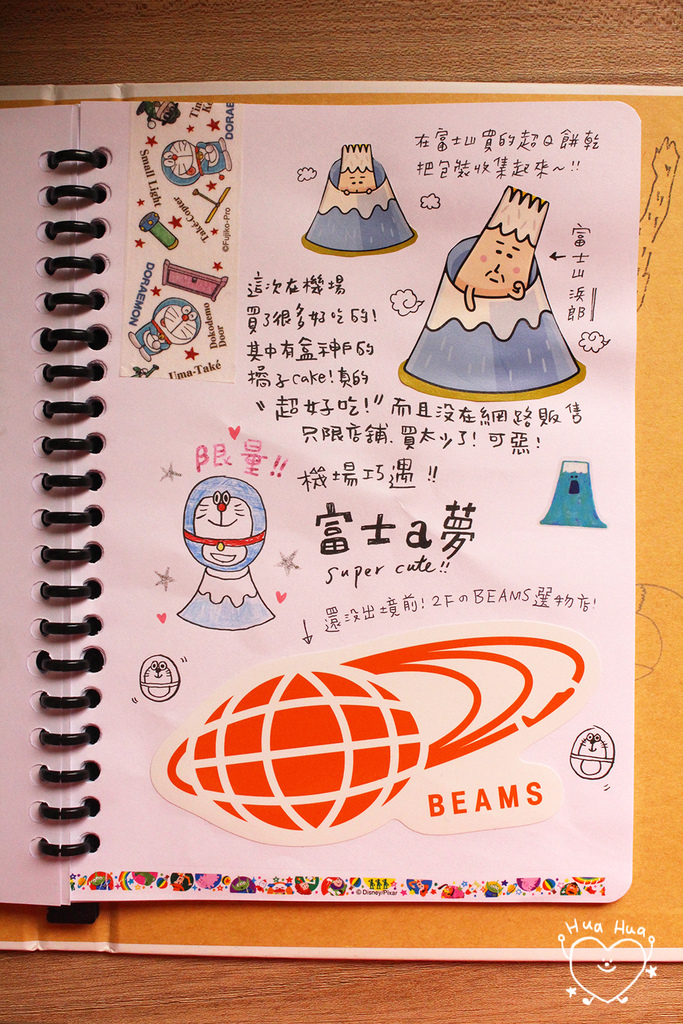 在富士山買的超Q餅乾
把包裝收集起來~!!
富士山浜郎
這次在機場
買了很多好吃的!
其中有盒神戶的
橘子cake!真的
"超好吃!"而且沒在網路販售
只限店鋪.買太少了!可惡!
限量!!
機場巧遇!!
富士a夢
super cute!!
還沒出境前!2FのBEAMS選物店!
BEAMS
DORAEMON
Small Light
Take-Copter
©Fujiko-Pro
DORAEMON
Dokodemo
Door
Uma-Také
© Disney/Pixar
Hua Hua